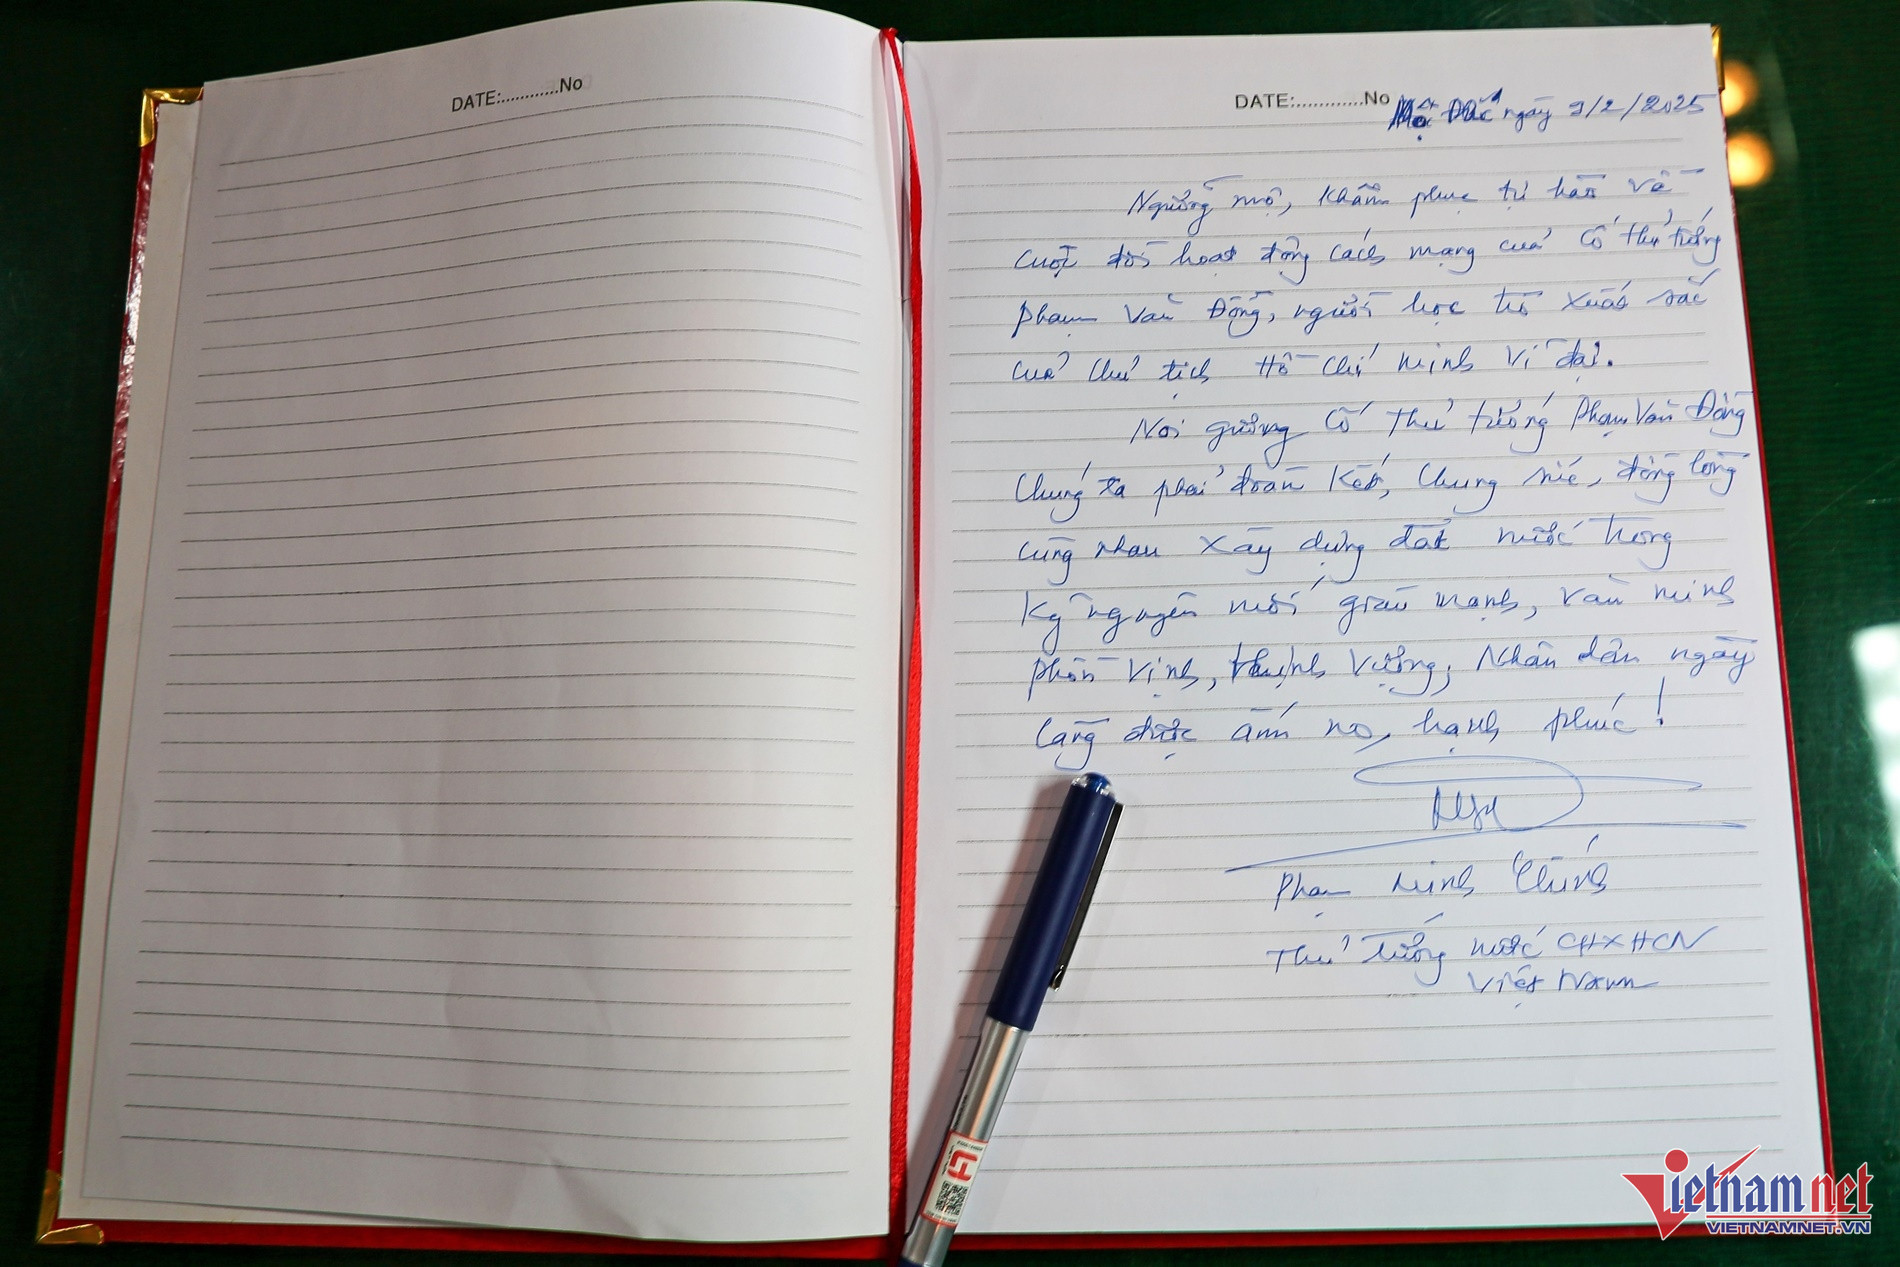 DATE:............No
DATE:.............No
Mộ Đức ngày 3/2/2025
Ngưỡng mộ, khâm phục tự hào về
cuộc đời hoạt động cách mạng của Cố Thủ tướng
Phạm Văn Đồng, người học trò xuất sắc
của Chủ tịch Hồ Chí Minh vĩ đại.
Noi gương Cố Thủ tướng Phạm Văn Đồng
Chúng ta phải đoàn kết, Chung sức, đồng lòng
cùng nhau xây dựng đất nước trong
kỷ nguyên mới giàu mạnh, văn minh
phồn vinh, thịnh vượng, Nhân dân ngày
càng được ấm no, hạnh phúc!
Phạm Minh Chính
Thủ tướng nước CHXHCN
Việt Nam
Vietnamnet
VIETNAMNET.VN